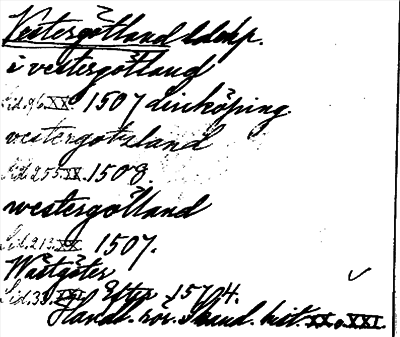 Vestergötland ldskp.
i vestergötland
Sid. 96. XX. 1507 Linköping
vestergotzland
Sid. 255. XX. 1508.
westergötland
Sid. 213. XX. 1507.
Wästgöter
Sid. 33. XXI. Efter 1504.
Handl. rör. Skand. hist. XX o. XXI.